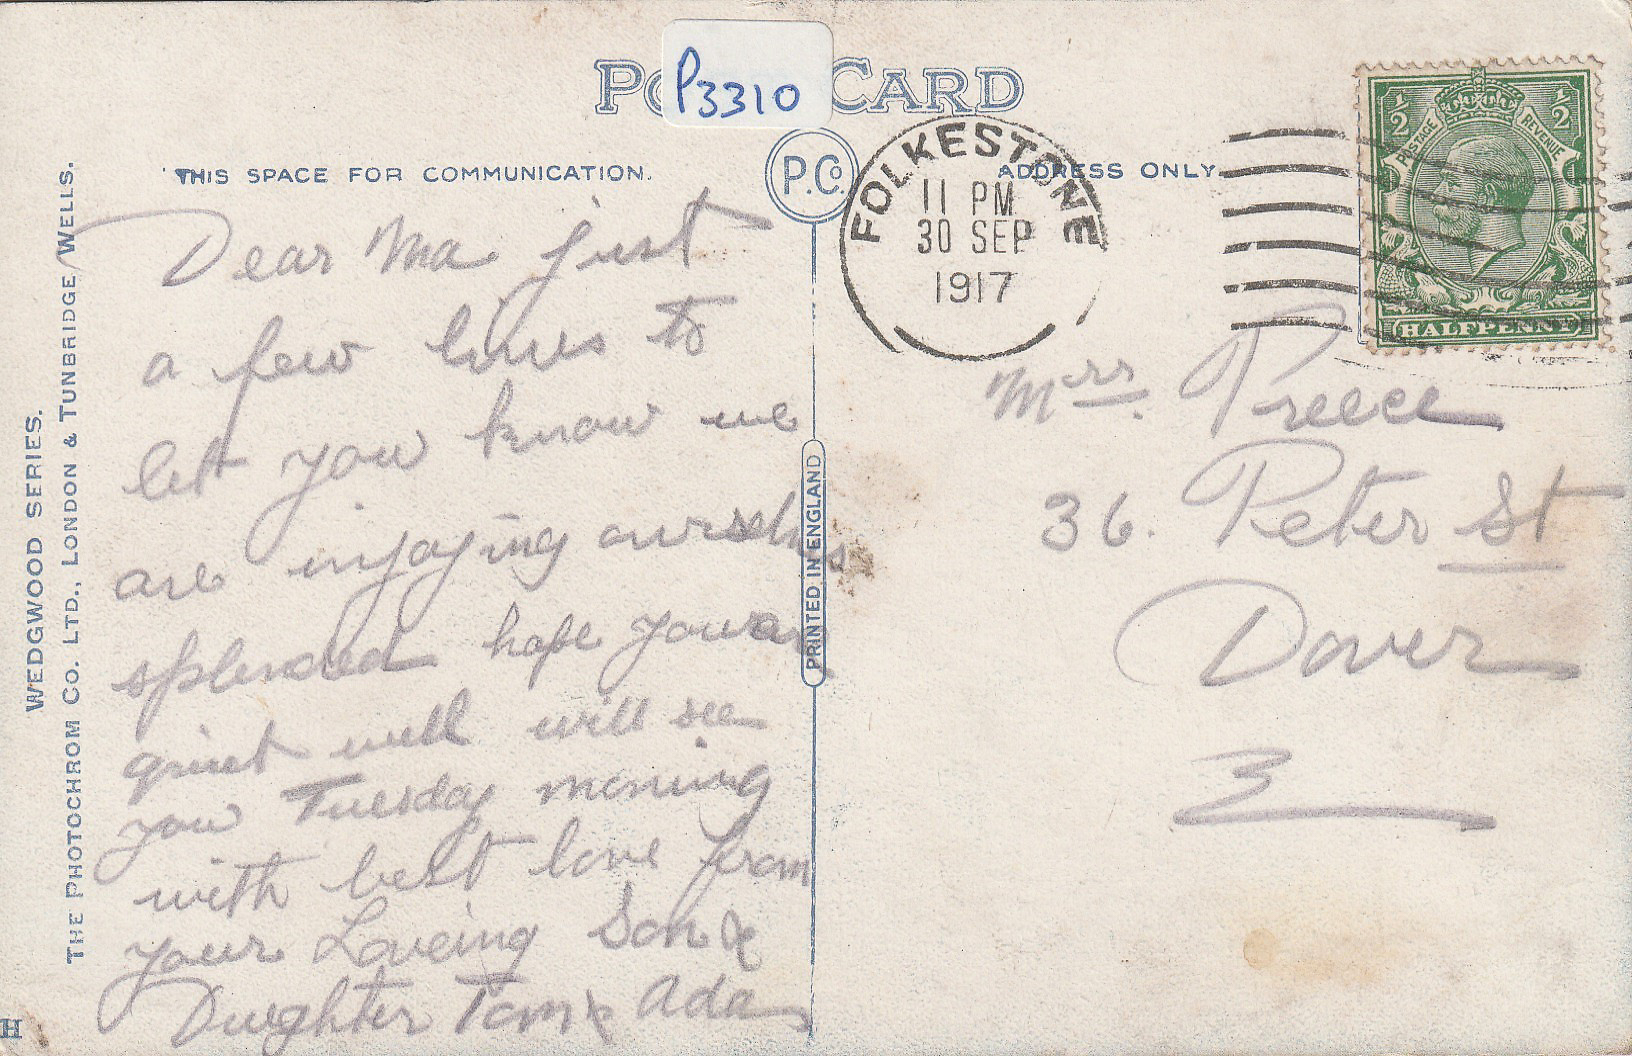 POST CARD
P3310
THIS SPACE FOR COMMUNICATION.
P.Co.
ADDRESS ONLY.
FOLKESTONE
11 PM
30 SEP
1917
1/2 1/2
POSTAGE REVENUE
HALFPENNY
WEDGWOOD SERIES.
THE PHOTOCHROM CO. LTD., LONDON & TUNBRIDGE WELLS.
PRINTED IN ENGLAND
H
Dear Ma just
a few lines to
let you know we
are injoying ourselves
splended hope you are
quiet well will see
you Tuesday morning
with best love from
your Loveing Son &
Dughter Tom & Ada
Mrs Preece
36. Peter St
Dover